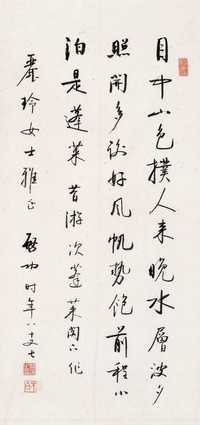 目中山色撲人来晚水層波夕
照開多谢好風帆勢飽前程小
泊是蓬莱 昔游次蓬莱阁下作
麗玲女士雅正 啓功时年八十又七